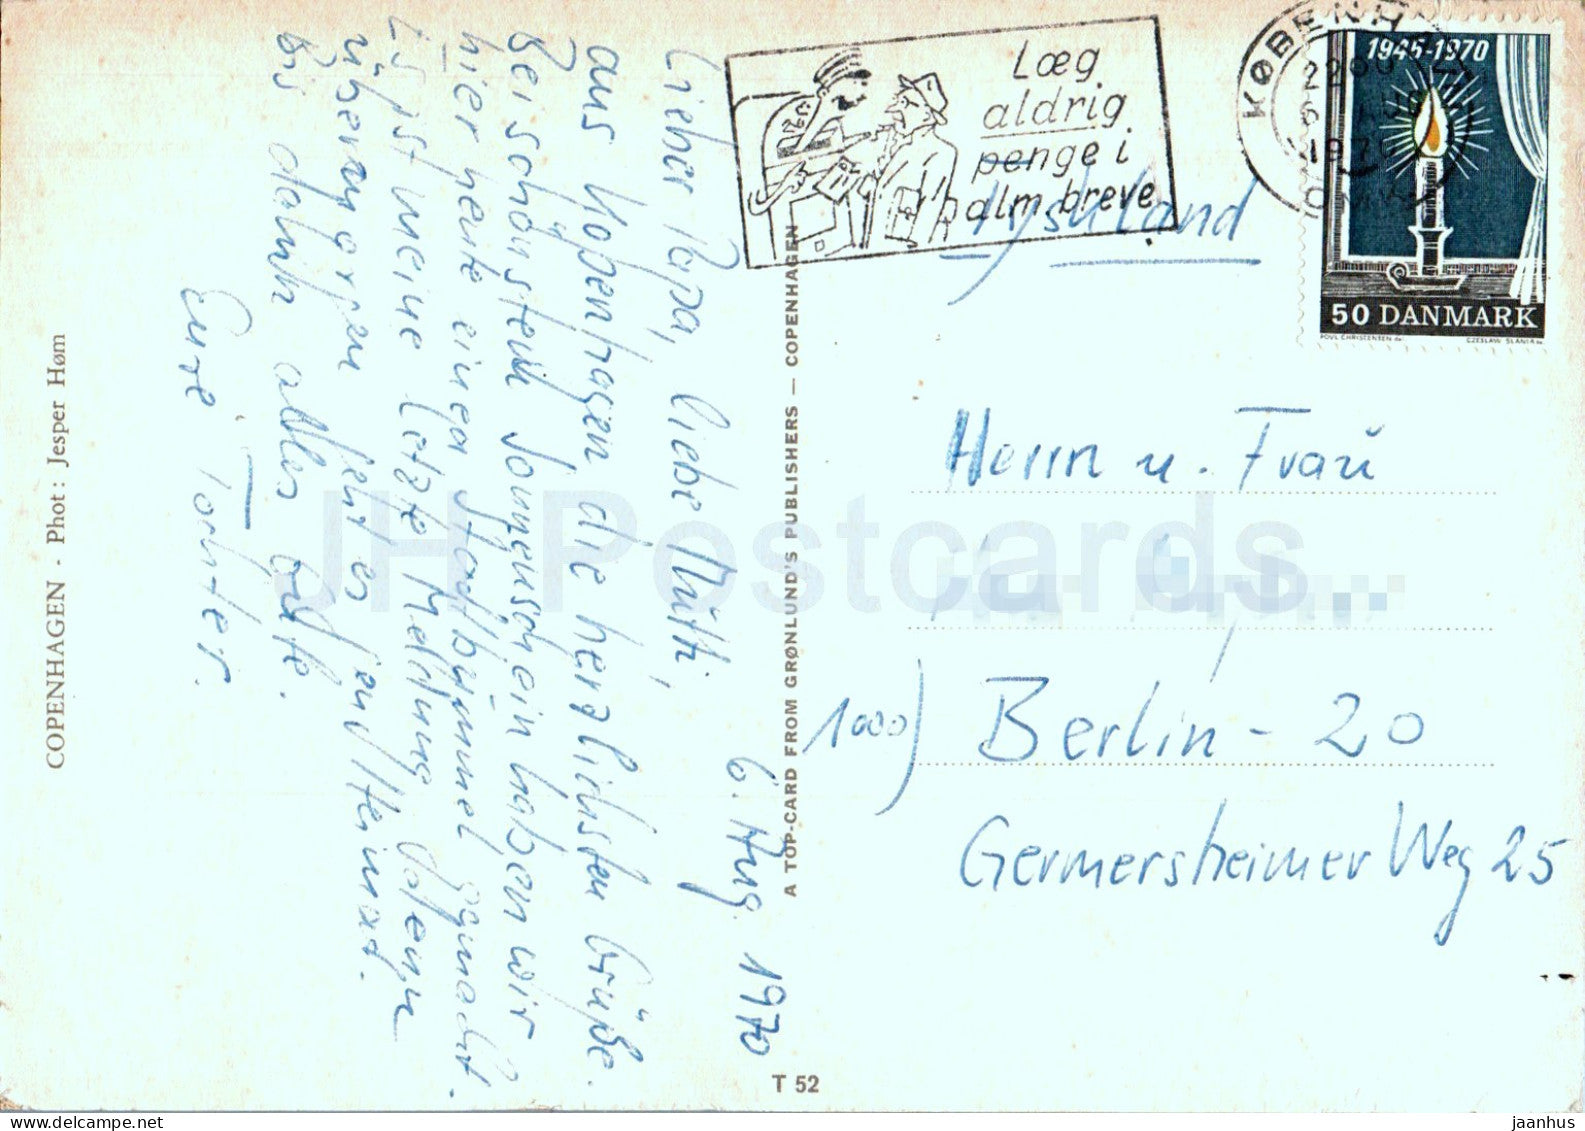 COPENHAGEN - Phot : Jesper Høm
6. Aug. 1970
Lieber Papa, liebe Mutti,
aus Kopenhagen die herzlichsten Grüße.
Bei schönstem Sonnenschein haben wir
hier heute einen Stadtbummel gemacht.
Es ist meine letzte Meldung, denn
übermorgen geht es gen Heimat.
Bis dahin alles Gute.
Eure Tochter.
A TOP-CARD FROM GRØNLUND'S PUBLISHERS — COPENHAGEN
T 52
Læg
aldrig
penge i
almbreve
KØBENHAVN
OMK
1970
1945-1970
50 DANMARK
POUL CHRISTENSEN del.
CZESLAW SLANIA sc.
Herrn u. Frau
1000) Berlin - 20
Germersheimer Weg 25
JH Postcards
jaanhus